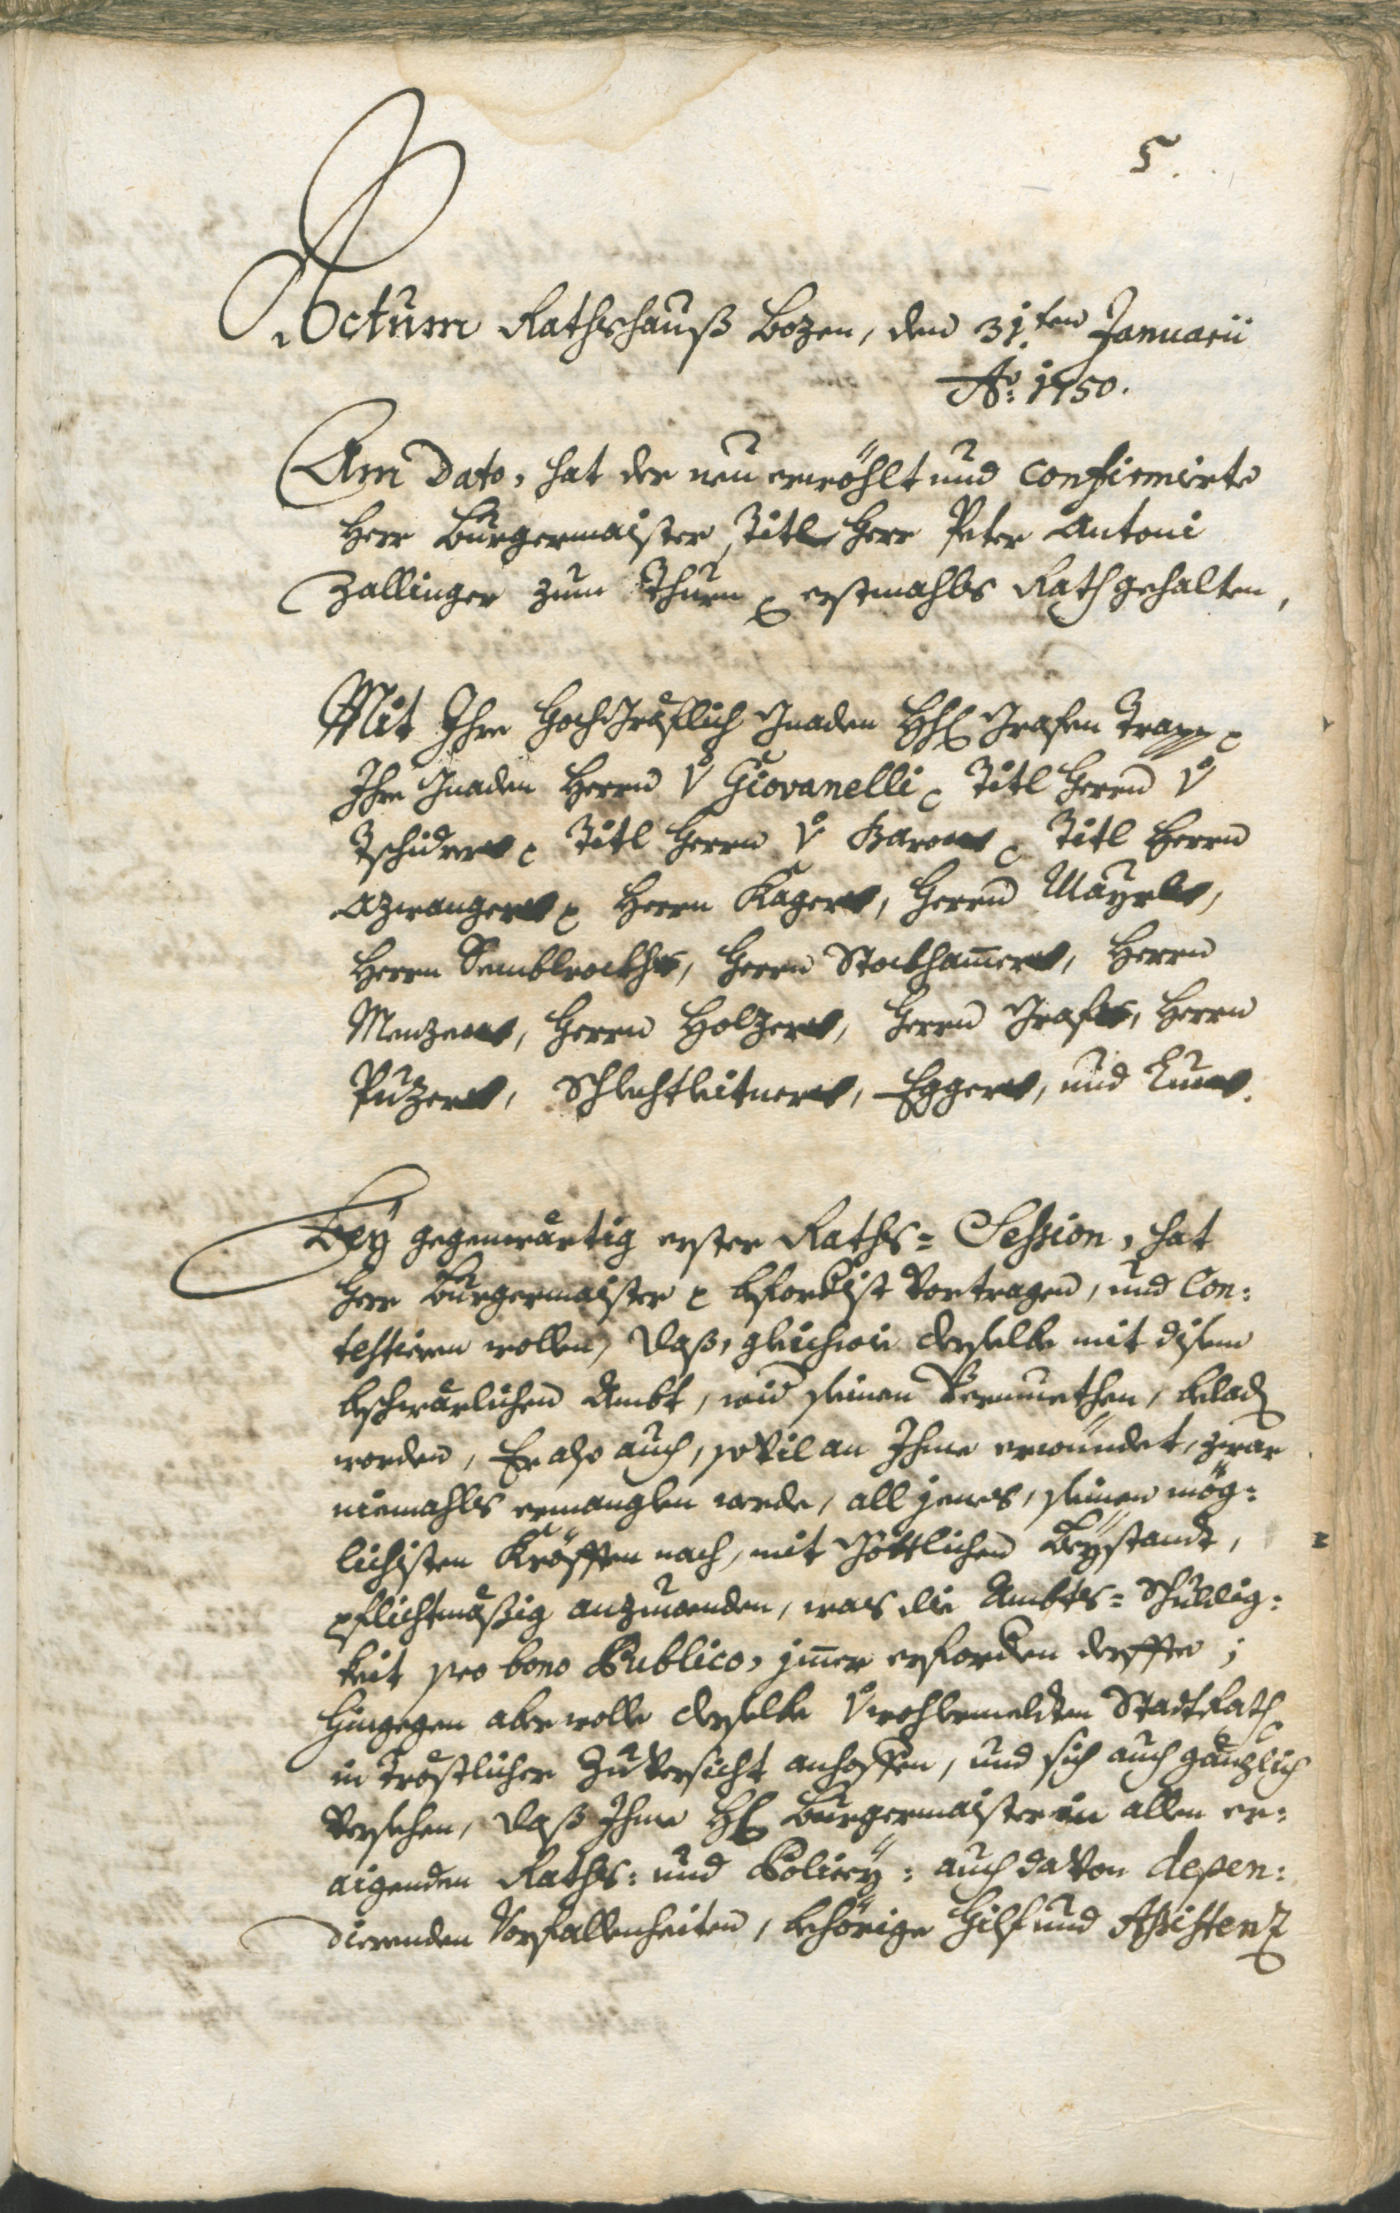 5.
Actum Rathshauß Bozen, den 31.ten Januarii
Ao: 1750.
Am Dato, hat der neu erwöhlt und confirmirte
Herr Burgermaister, Titl Herr Peter Antoni
Zallinger zum Thurn erstmahls Rath gehalten,
Mit Ihre Hochgräflich Gnaden Grafen Trapp
Ihre Gnaden Herrn v Giovanelli, Titl Herrn v
Tschiderer Titl Herrn v Titl Herrn
Azwanger Herrn Kager, Herrn Mayrl,
Herrn Semblrockh, Herrn Stockhamer, Herrn
Menz, Herrn Holzer, Herrn Graf, Herrn
Puzer, Schlechtleitner, Egger, und Lun.
Bey gegenwärtig erster Raths= Session, hat
Herr Burgermaister Vortragen, und Con:
testieren wollen, daß, gleichwie derselbe mit disem
beschwärlichen Ambt, wid seinen Vermuethen, belad
worden, Er also auch, sovil an Ihme erwündet, zwar
niemahls ermanglen werde, all jenes, seinen mög:
lichisten Kröfften nach, mit Göttlichen Beystandt,
pflichtmäßig anzuwenden, was die Ambts= Schuldig:
keit pro bono Publico, imer erfordern derffte;
Hingegen aber wolle derselbe wohlermeldten Stadt Rath
in tröstlicher Zuversicht anhoffen, und sich auch gänzlich
Versehen, daß Ihme H Burgermaister in allen er:
aigenden Raths: und Policey: auch davon depen:
dierenden Vorfallenheiten, behörige Hilf und Assistenz